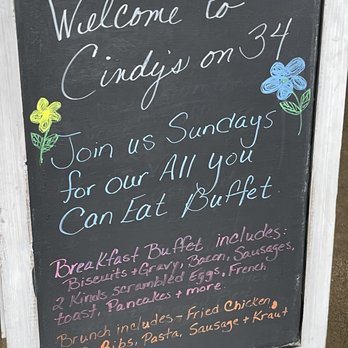 Welcome to
Cindy's on 34
Join us Sundays
for our All you
Can Eat Buffet.
Breakfast Buffet includes:
Biscuits + Gravy, Bacon, Sausages,
2 Kinds scrambled Eggs, French
toast, Pancakes + more.
Brunch includes - Fried Chicken,
Ribs, Pasta, Sausage + Kraut